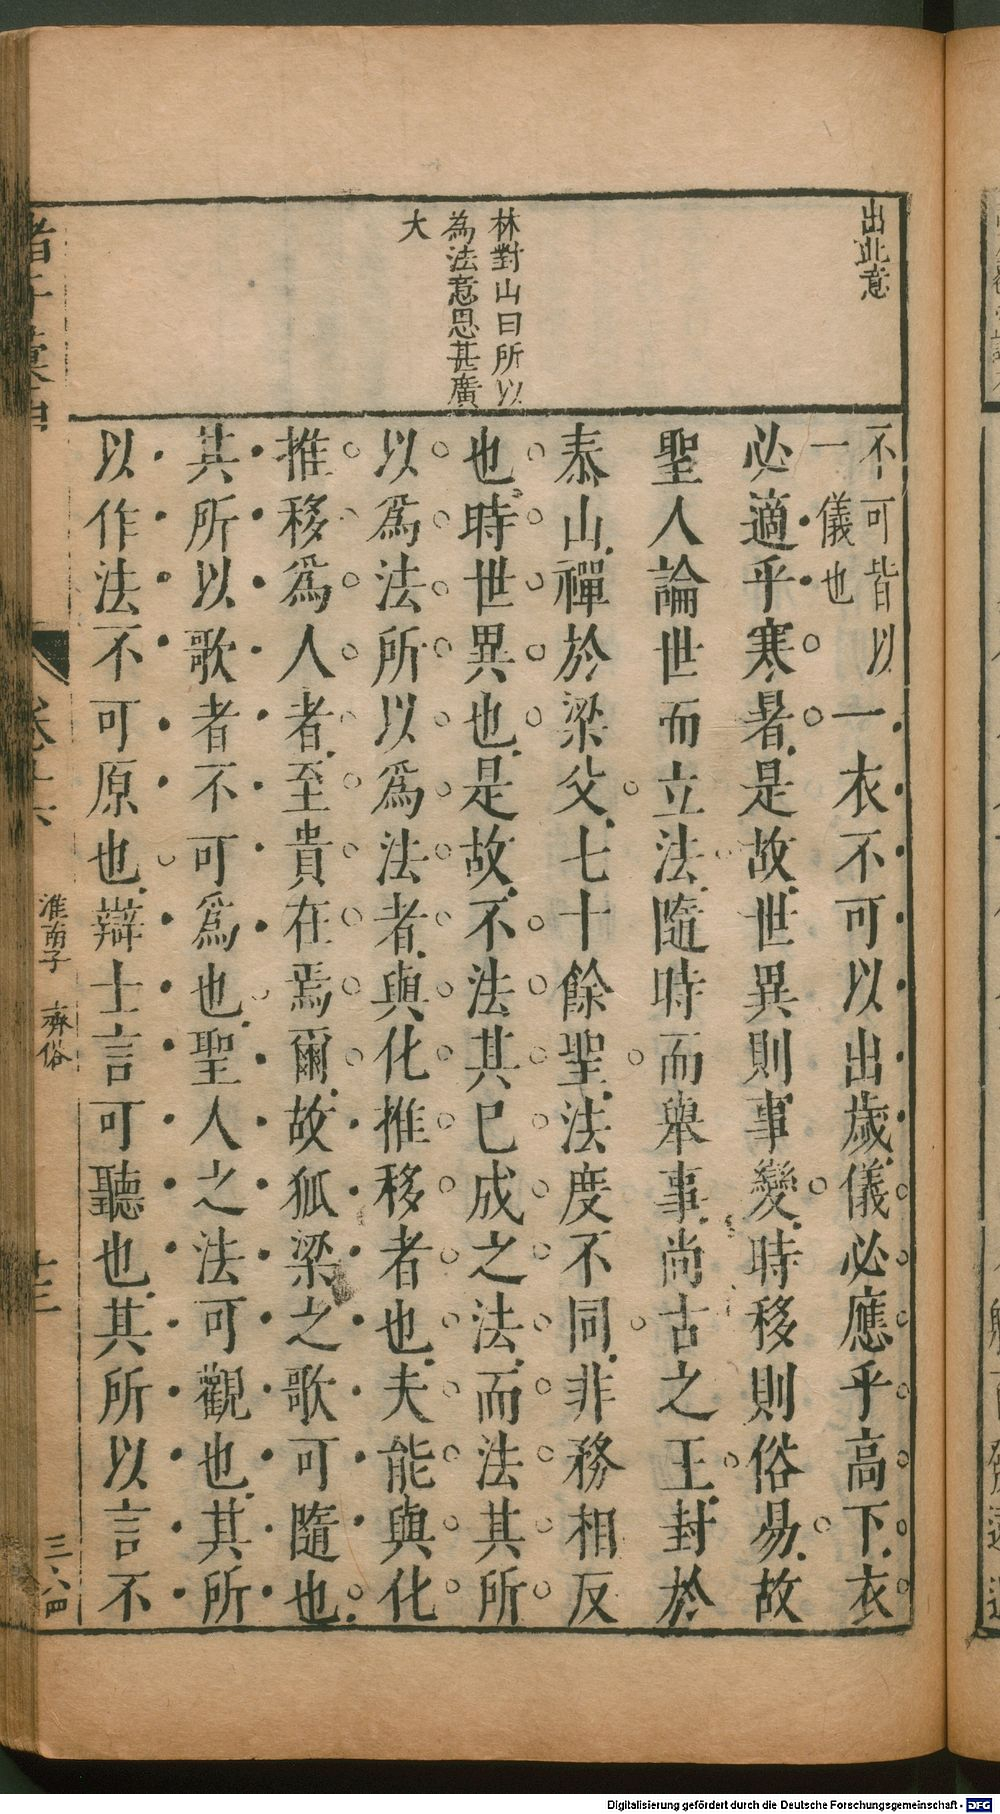 出此意
林對山曰所以
為法意思甚廣
大
不可皆以
一儀也
一衣不可以出歲儀必應乎高下衣
必適乎寒暑是故世異則事變時移則俗易故
聖人論世而立法隨時而舉事尚古之王封於
泰山禪於梁父七十餘聖法度不同非務相反
也時世異也是故不法其已成之法而法其所
以爲法所以爲法者與化推移者也夫能與化
推移爲人者至貴在焉爾故狐梁之歌可隨也
其所以歌者不可爲也聖人之法可觀也其所
以作法不可原也辯士言可聽也其所以言不
淮南子 齊俗
Digitalisierung gefördert durch die Deutsche Forschungsgemeinschaft - DFG